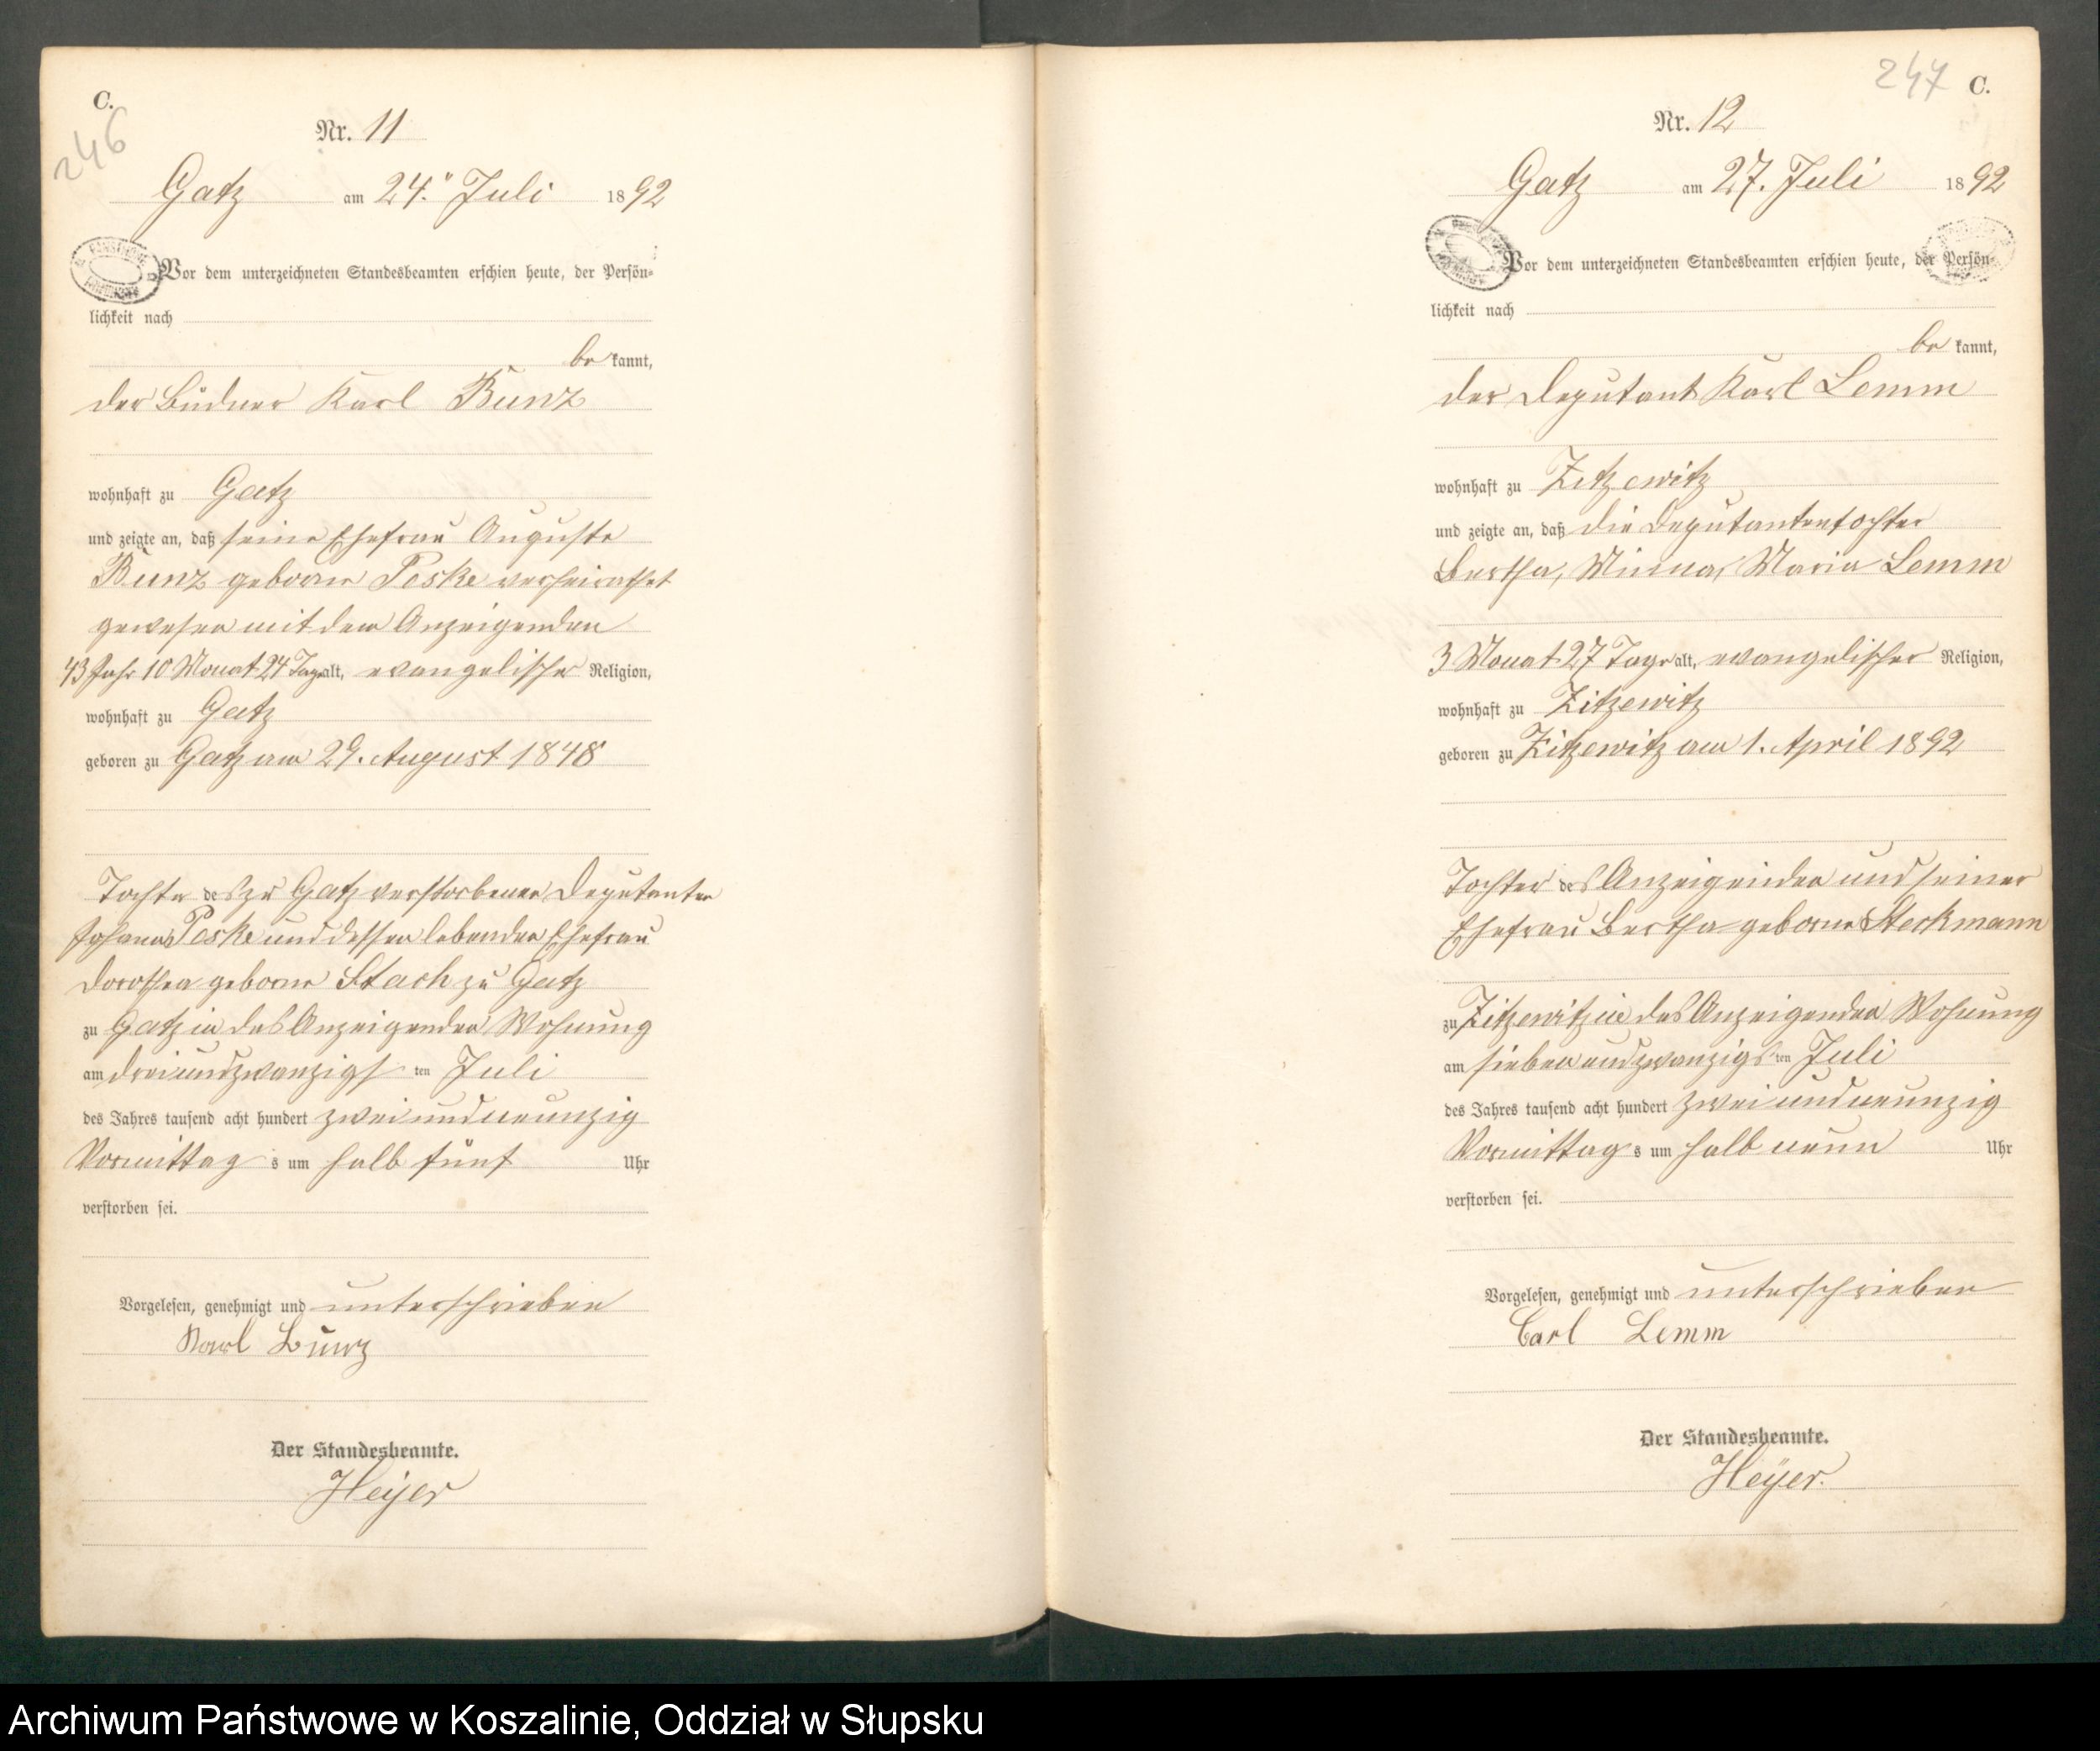 C.
246
Nr. 11
Gatz am 24. Juli 1892
Vor dem unterzeichneten Standesbeamten erschien heute, der Persön=
lichkeit nach
be kannt,
der Büdner Karl Bunz
wohnhaft zu Gatz
und zeigte an, daß seine Ehefrau Auguste
Bunz geborne Peske verheirathet
gewesen mit dem Anzeigenden
43 Jahr 10 Monat 24 Tage alt, evangelischer Religion,
wohnhaft zu Gatz
geboren zu Gatz am 29. August 1848
Tochter des zu Gatz verstorbenen Deputanten
Johann Peske und dessen lebenden Ehefrau
Dorothea geborne Stach zu Gatz
zu Gatz in des Anzeigenden Wohnung
am dreiundzwanzigsten Juli
des Jahres tausend acht hundert zweiundneunzig
Vormittag s um halb fünf Uhr
verstorben sei.
Vorgelesen, genehmigt und unterschrieben
Karl Bunz
Der Standesbeamte.
Heyer
247 C.
Nr. 12
Gatz am 27. Juli 1892
Vor dem unterzeichneten Standesbeamten erschien heute, der Persön=
lichkeit nach
be kannt,
der Deputant Karl Lemm
wohnhaft zu Zitzewitz
und zeigte an, daß die Deputantentochter
Bertha, Minna, Maria Lemm
3 Monat 27 Tage alt, evangelischer Religion,
wohnhaft zu Zitzewitz
geboren zu Zitzewitz am 1. April 1892
Tochter des Anzeigenden und seiner
Ehefrau Bertha geborne Steckmann
zu Zitzewitz in des Anzeigenden Wohnung
am siebenundzwanzigsten Juli
des Jahres tausend acht hundert zweiundneunzig
Vormittag s um halb neun Uhr
verstorben sei.
Vorgelesen, genehmigt und unterschrieben
Carl Lemm
Der Standesbeamte.
Heyer.
Archiwum Państwowe w Koszalinie, Oddział w Słupsku